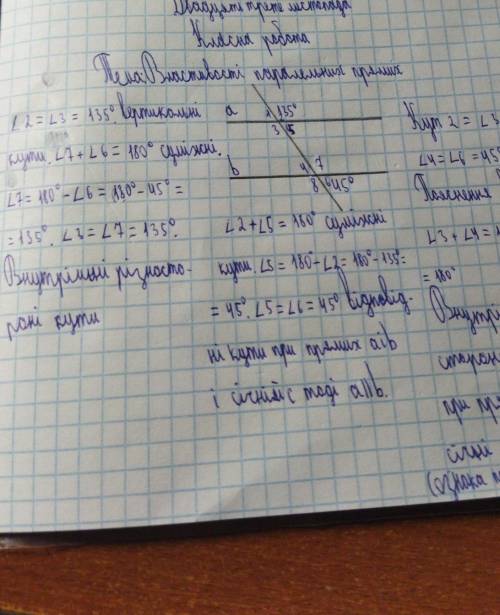 Двадцять третє листопада
Класна робота
Тема: Властивості паралельних прямих
∠2 = ∠3 = 135°. вертикальні
кути. ∠7 + ∠6 = 180° суміжні.
∠7 = 180° - ∠6 = 180° - 45° =
= 135°. ∠3 = ∠7 = 135°.
Внутрішні різносто-
роні кути
a
2 135°
3 5
b
4 7
8 6 45°
∠2 + ∠5 = 180° суміжні
кути. ∠5 = 180° - ∠2 = 180° - 135° =
= 45°. ∠5 = ∠6 = 45° відповід-
ні кути при прямих a i b
і січній c тоді a || b.
Кут 2 = ∠3
∠4 = ∠6 = 45°
Пояснення
∠3 + ∠4 =
= 180°
Внутрі
сторон
при пря
січні
(ознака п